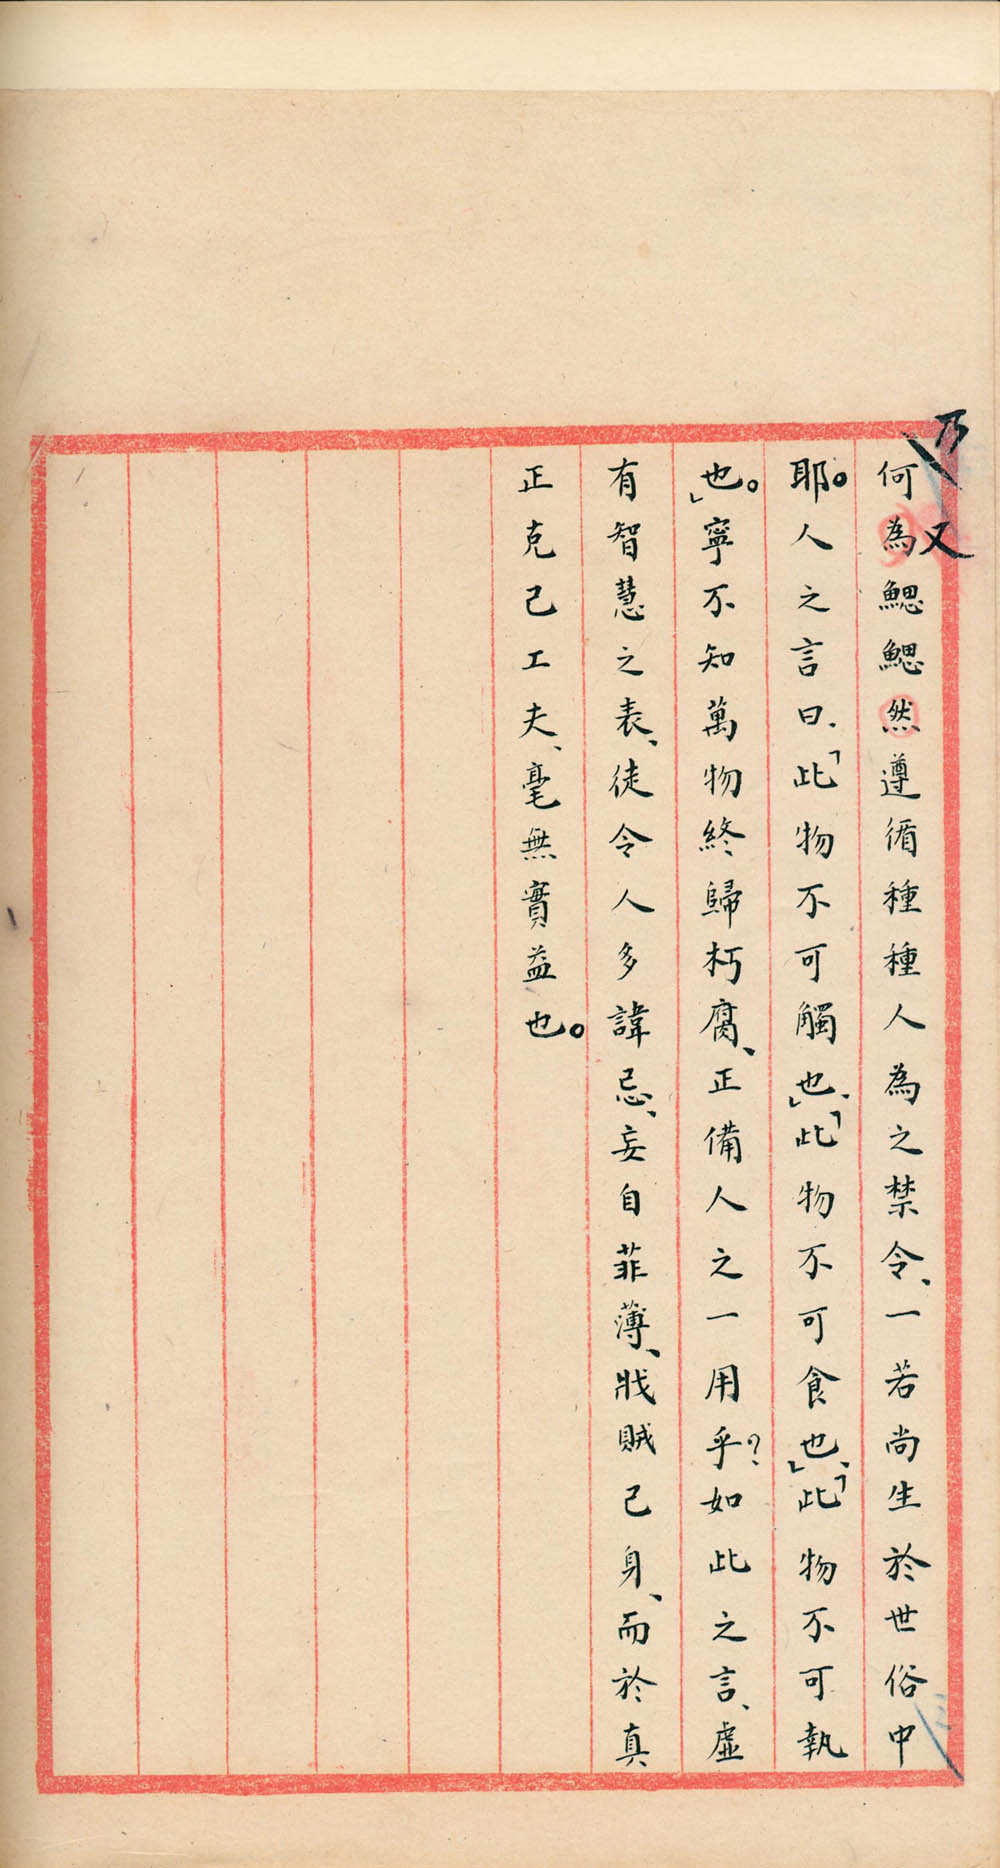 乃
又
何為鰓鰓然遵循種種人為之禁令、一若尚生於世俗中
耶。人之言曰、「此物不可觸也」、「此物不可食也」、「此物不可執
也。」寧不知萬物終歸朽腐、正備人之一用乎？如此之言、虛
有智慧之表、徒令人多諱忌、妄自菲薄、戕賊己身、而於真
正克己工夫、毫無實益也。